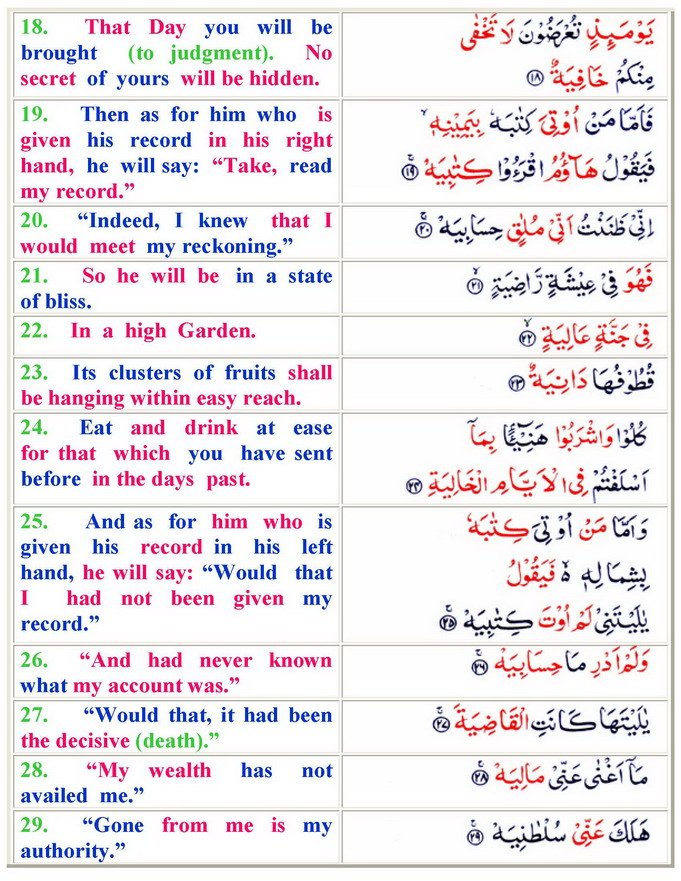 18. That Day you will be
brought (to judgment). No
secret of yours will be hidden.
يَوْمَىِٕذٍ تُعْرَضُوْنَ لَا تَخْفٰى
مِنْكُمْ خَافِيَةٌ ۝۱۸
19. Then as for him who is
given his record in his right
hand, he will say: “Take, read
my record.”
فَاَمَّا مَنْ اُوْتِىَ كِتٰبَهٗ بِيَمِيْنِهٖ ۙ
فَيَقُوْلُ هَآؤُمُ اقْرَءُوْا كِتٰبِيَهْ ۝۱۹ۚ
20. “Indeed, I knew that I
would meet my reckoning.”
اِنِّىْ ظَنَنْتُ اَنِّىْ مُلٰقٍ حِسَابِيَهْ ۝۲۰ۚ
21. So he will be in a state
of bliss.
فَهُوَ فِىْ عِيْشَةٍ رَّاضِيَةٍ ۝۲۱ۙ
22. In a high Garden.
فِىْ جَنَّةٍ عَالِيَةٍ ۝۲۲ۙ
23. Its clusters of fruits shall
be hanging within easy reach.
قُطُوْفُهَا دَانِيَةٌ ۝۲۳
24. Eat and drink at ease
for that which you have sent
before in the days past.
كُلُوْا وَاشْرَبُوْا هَنِيْٓـًٔۢا بِمَآ
اَسْلَفْتُمْ فِى الْاَيَّامِ الْخَالِيَةِ ۝۲۴
25. And as for him who is
given his record in his left
hand, he will say: “Would that
I had not been given my
record.”
وَاَمَّا مَنْ اُوْتِىَ كِتٰبَهٗ
بِشِمَالِهٖ ۵ فَيَقُوْلُ
يٰلَيْتَنِىْ لَمْ اُوْتَ كِتٰبِيَهْ ۝۲۵ۚ
26. “And had never known
what my account was.”
وَلَمْ اَدْرِ مَا حِسَابِيَهْ ۝۲۶ۚ
27. “Would that, it had been
the decisive (death).”
يٰلَيْتَهَا كَانَتِ الْقَاضِيَةَ ۝۲۷ۚ
28. “My wealth has not
availed me.”
مَآ اَغْنٰى عَنِّىْ مَالِيَهْ ۝۲۸ۚ
29. “Gone from me is my
authority.”
هَلَكَ عَنِّىْ سُلْطٰنِيَهْ ۝۲۹ۚ